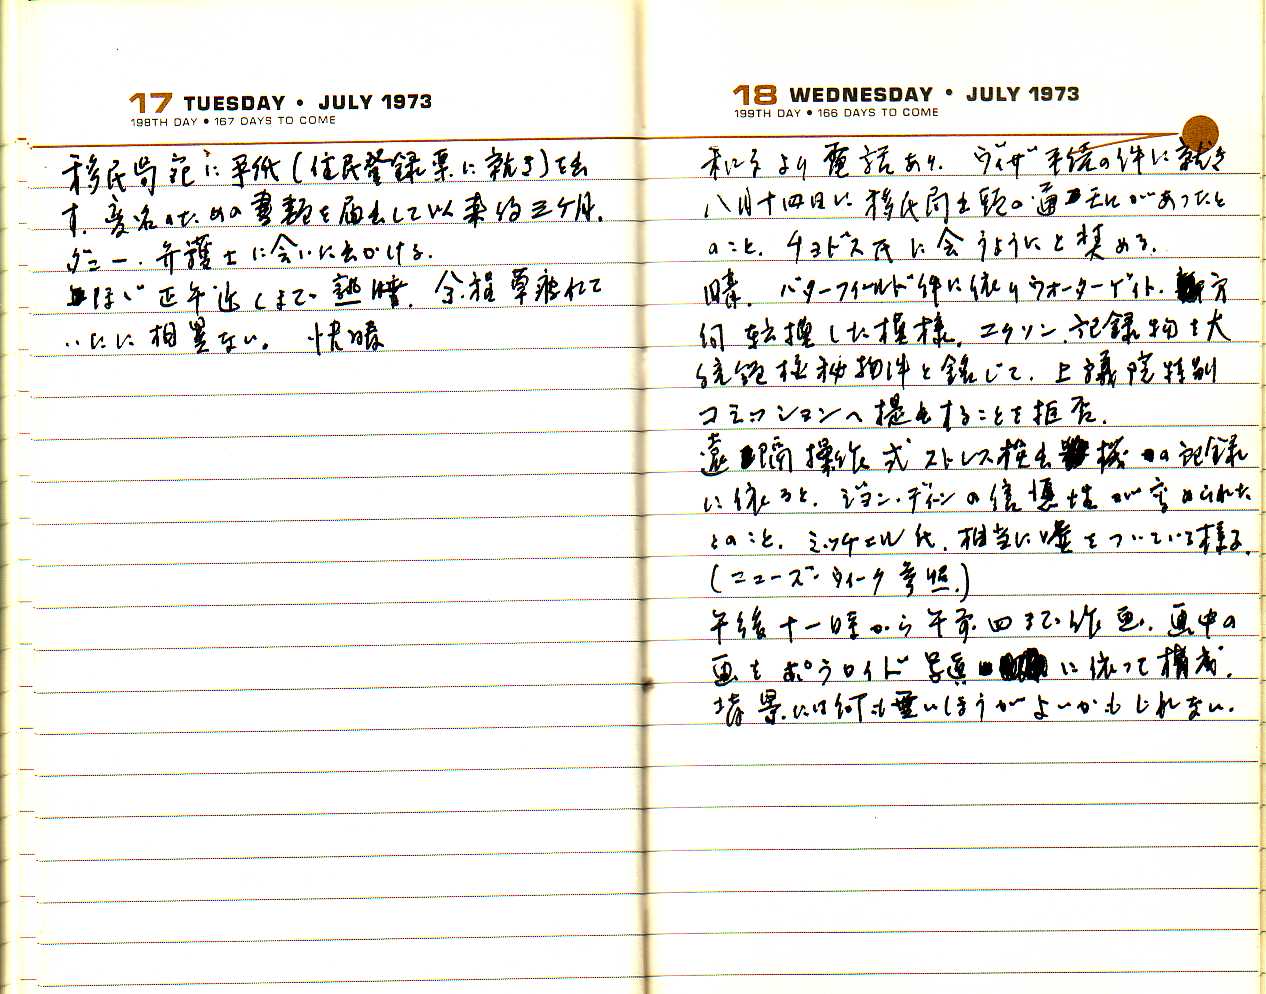 17 TUESDAY • JULY 1973
198TH DAY • 167 DAYS TO COME
移民局宛に手紙(住民登録票に就き)を出
す。変名のための書類を届出して以来約三ケ月。
弁護士に会いに出かける。
ほゞ正午近くまで熟睡。余程草疲れて
いたに相異ない。 快晴
18 WEDNESDAY • JULY 1973
199TH DAY • 166 DAYS TO COME
より電話あり。ヴィザ手続の件に就き
八月十四日に移民局出頭の通知があったと
のこと。チョドス氏に会うようにと奨める。
晴。バターフィールド件に依りウォーターゲイト、方
向転換した模様。ニクソン、記録物を大
統領極秘物件と銘じて、上議院特別
コミッションへ提出することを拒否。
遠隔操作式ストレス検出機の記録
に依ると、ジョン・ディーンの信憑性が
とのこと。ミッチェル氏、相当に嘘をついている様子。
(ニューズ・ウィーク参照。)
午後十一時から午前四まで作画。画中の
画をポラロイド写真に依って構成。
背景には何も無いほうがよいかもしれない。